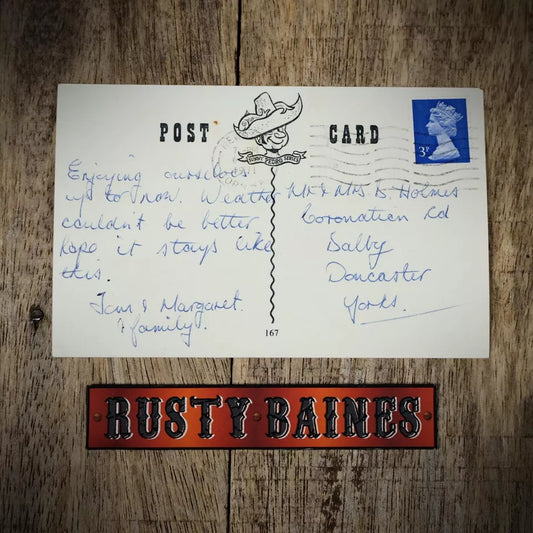 POST CARD
SUNNY PEDRO SERIES
3P
Enjoying ourselves
up to now. Weather
couldn't be better
hope it stays like
this.
Tom & Margaret.
& family.
Mr & Mrs B. Holmes
Coronation Rd
Balby
Doncaster
Yorks.
167
RUSTY BAINES